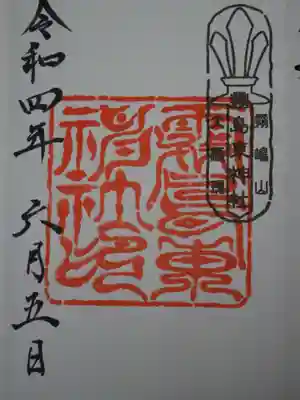 霧嶋山
霧島東神社
霧島東
神社印
令和四年 六月五日